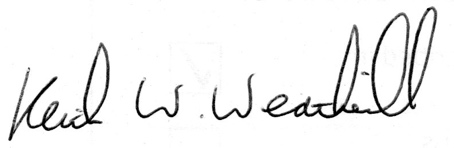 Keith W. Weatherill